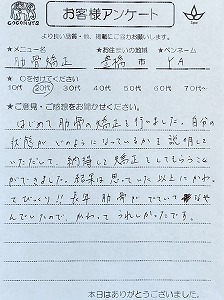 GOGOKURA
お客様アンケート
より良い品質・他、掲載にご協力お願いします。
★メニュー名 ★お住まいの地域 ★ペンネーム
肋骨矯正 豊橋市 Y.A
★○を付けてください
10代 20代 30代 40代 50代 60代 70代～
★ご意見・ご感想をお聞かせください。
はじめて肋骨の矯正を行いました。自分の
状態がどのようになっているかを説明して
いただいて、納得して矯正としてもらうこと
ができました。結果は思っていた以上にかわっ
てびっくり!!長年肋骨がでていてなや
んでいたので、かわって うれしかったです。
本日はありがとうございました。